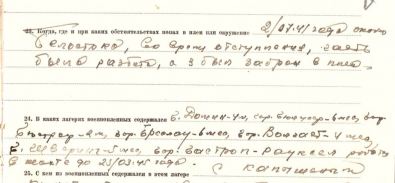 23. Когда, где и при каких обстоятельствах попал в плен или окружение 2/07.41 года около
Белостока, во время отступления, часть
была разбита, а я был забран в плен.
24. В каких лагерях военнопленных содержался
4 м., гор. 6 мес., гор.
гор. Бреслау 6 мес., гор. 4 мес.,
г. 5 мес., гор. Кастроп-Рауксел работал
в шахте до 25/03.45 года.
25. С кем из военнопленных содержался в этом лагере С